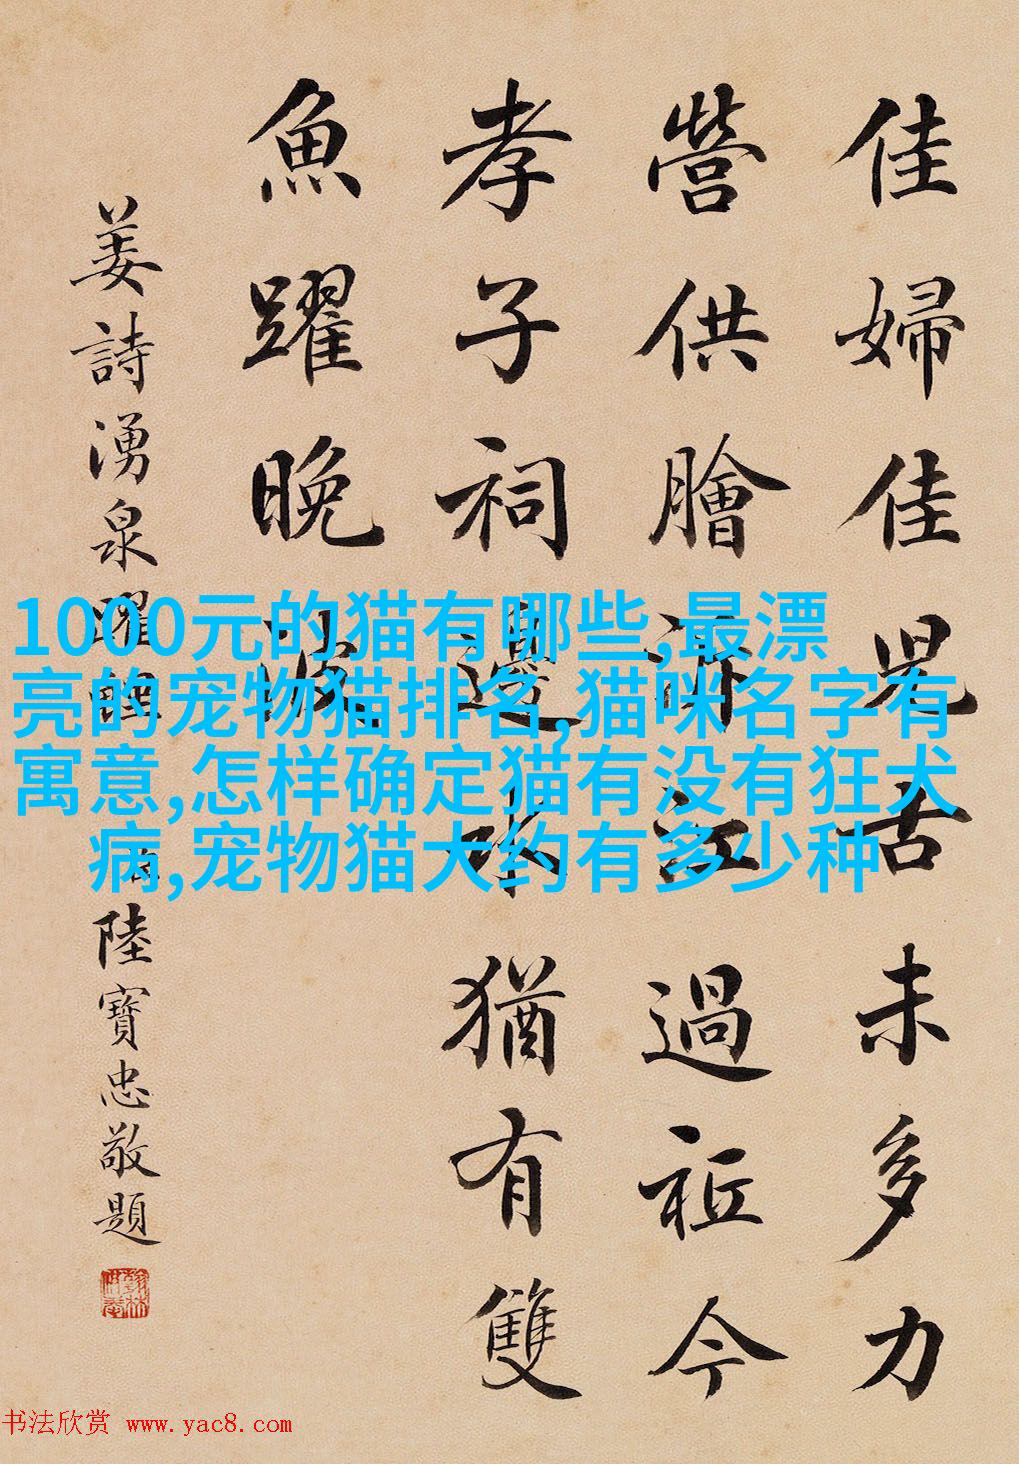 佳婦佳兒古未多力
營供膾泝江過祉今
孝子祠邊水猶有雙
魚躍晚波
姜詩湧泉躍鯉
陸寶忠敬題
1000元的猫有哪些,最漂
亮的宠物猫排名,猫咪名字有
寓意,怎样确定猫有没有狂犬
病,宠物猫大约有多少种
书法欣赏 www.yac8.com